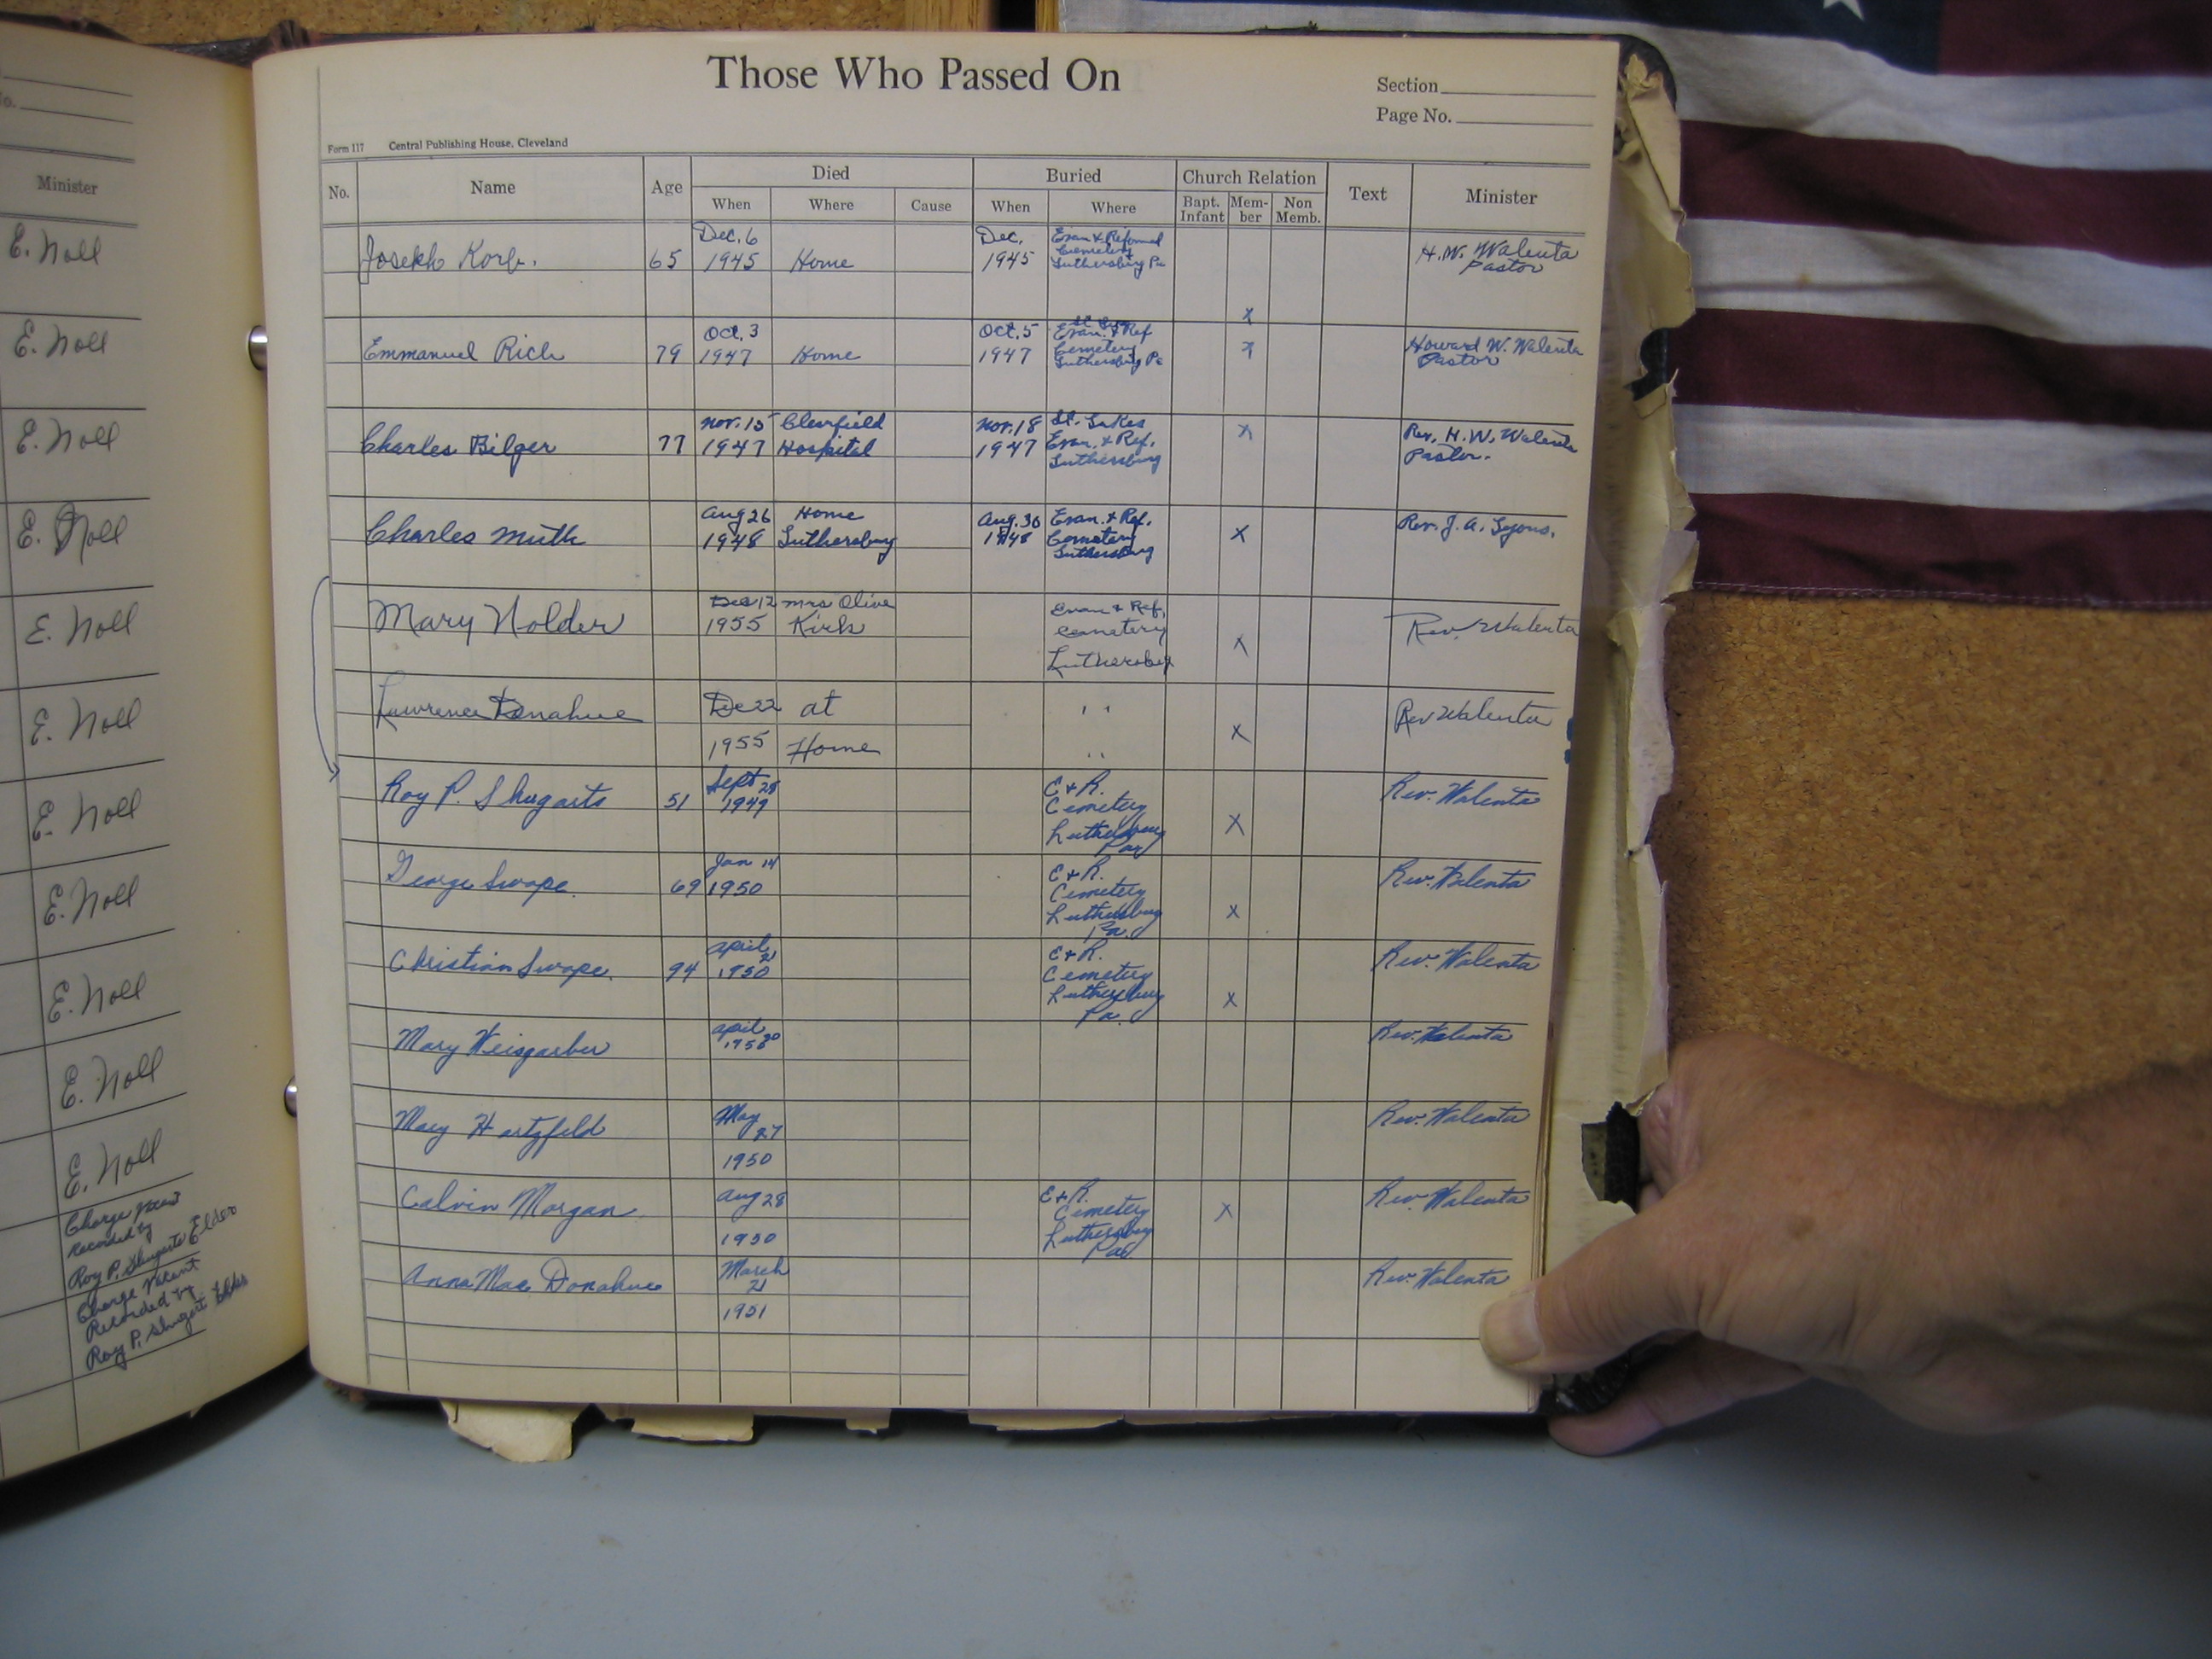 o.
Minister
E. Noll
E. Noll
E. Noll
E. Noll
E. Noll
E. Noll
E. Noll
E. Noll
E. Noll
E. Noll
E. Noll
Charge
Recorded by
Roy P. Shugarts Elder
Charge Vacant
Recorded by
Roy P. Shugart Elder
Those Who Passed On
Section
Page No.
Form 117 Central Publishing House, Cleveland
No. Name Age Died Buried Church Relation Text Minister
When Where Cause When Where Bapt. Infant Mem-ber Non Memb.
Joseph Korb. 65 Dec. 6 1945 Home Dec. 1945 Evan & Reformed Cemetery Luthersburg Pa x H. W. Walenta Pastor
Emmanuel Rich 79 Oct. 3 1947 Home Oct. 5 1947 Evan. & Ref Cemetery Luthersburg Pa x Howard W. Walenta Pastor
Charles Bilger 77 Nov. 15 1947 Clearfield Hospital Nov. 18 1947 St. Lukes Evan. & Ref. Luthersburg x Rev. H. W. Walenta Pastor.
Charles Muth Aug 26 1948 Home Luthersburg Aug. 30 1948 Evan. & Ref. Cemetery Luthersburg x Rev. J. A. Lyons.
Mary Nolder Dec 12 1955 Mrs Olive Kirk Evan & Ref. Cemetery Luthersburg x Rev. Walenta
Lawrence Donahue Dec 22 1955 at Home " " x Rev Walenta
Roy P. Shugarts 51 Sept 28 1949 E & R. Cemetery Luthersburg Pa x Rev. Walenta
George Swope. 69 Jan 14 1950 E & R. Cemetery Luthersburg Pa. x Rev. Walenta
Christian Swope. 94 April 21 1950 E & R. Cemetery Luthersburg Pa. x Rev. Walenta
Mary Weisgarber April 30 1950 Rev. Walenta
Mary Hartzfeld May 27 1950 Rev. Walenta
Calvin Morgan Aug 28 1950 E & R. Cemetery Luthersburg Pa x Rev. Walenta
Anna Mae Donahue March 21 1951 Rev. Walenta